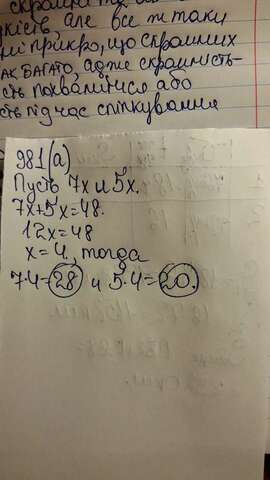 скромні та
людей, але все ж таки
мені прикро, що скромних
так БАГАТО, адже скромність-
сть похвалитися або
сть під час спілкування
981(а)
Пусть 7х и 5х.
7х+5х=48.
12х=48
х=4, тогда
7·4=28 и 5·4=20.